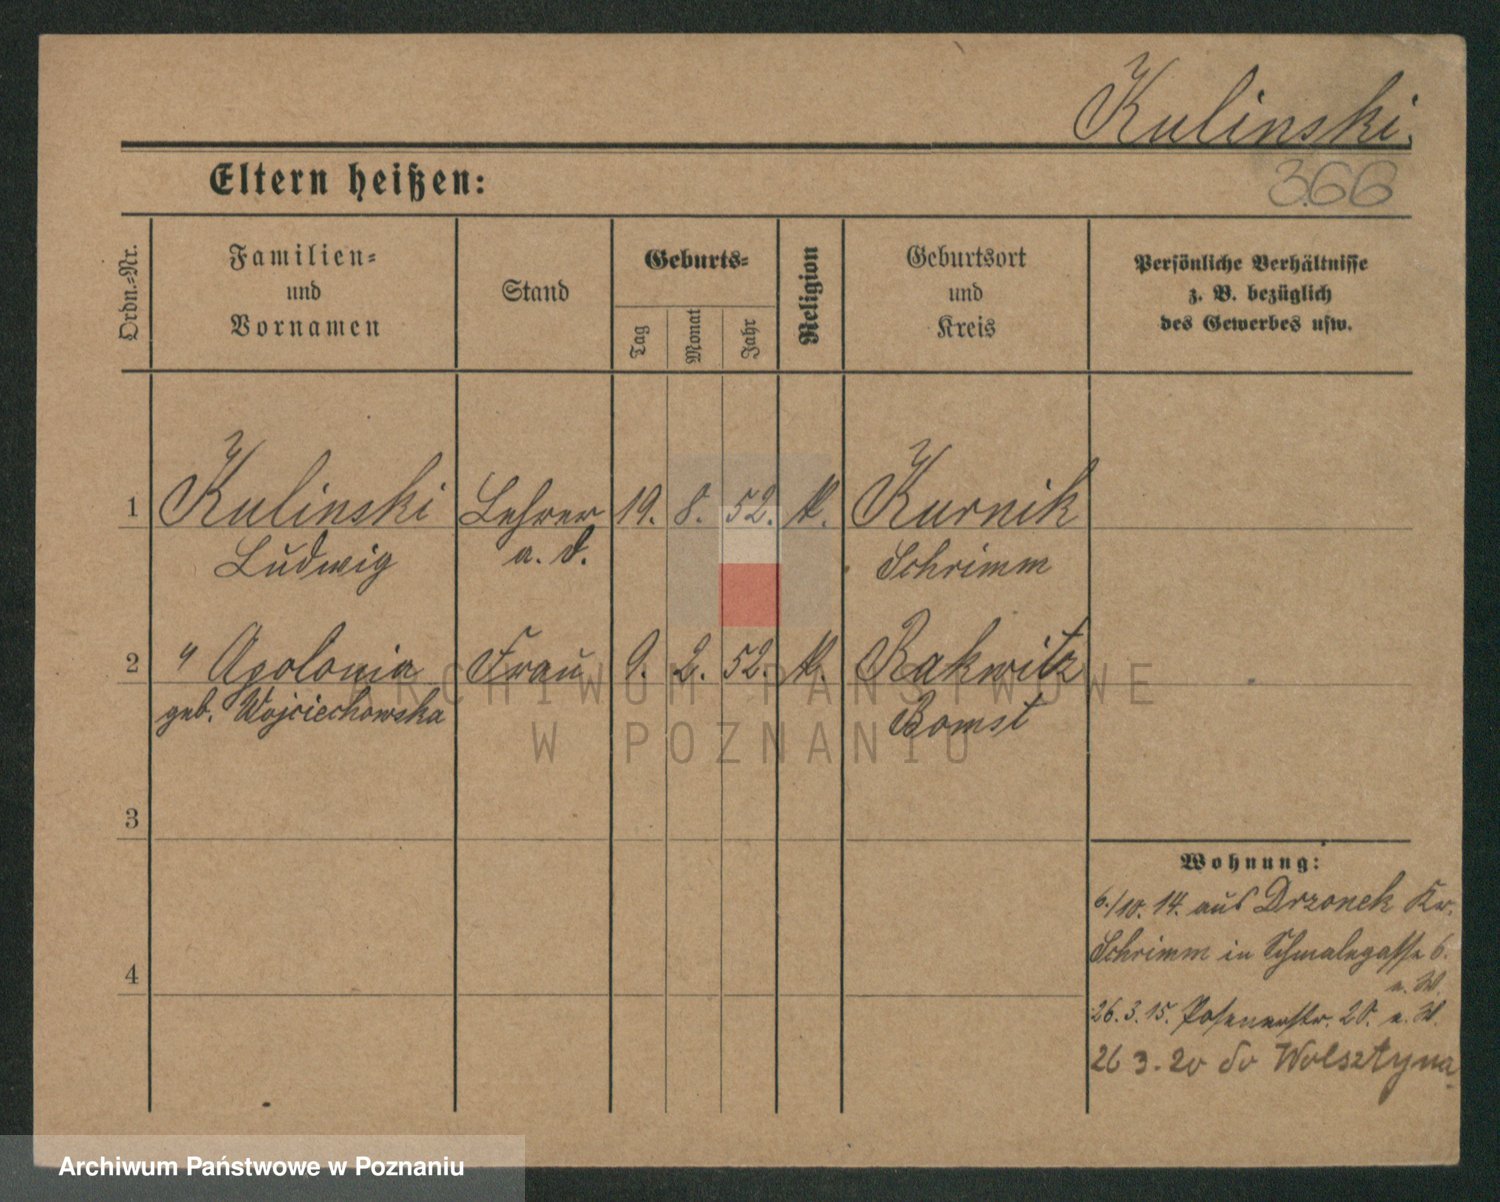 Kulinski.
366
Eltern heißen:
Ordn.-Nr.
Familien-
und
Vornamen
Stand
Geburts-
Tag
Monat
Jahr
Religion
Geburtsort
und
Kreis
Persönliche Verhältnisse
z. B. bezüglich
des Gewerbes usw.
1 Kulinski Lehrer 19. 8. 52. k. Kurnik
Ludwig a. d. Schrimm
2 " Apolonia Frau 9. 2. 52. k. Rakwitz
geb. Wojciechowska Bomst
3
Wohnung:
6./10. 14. aus Drzonek Kr.
4
Schrimm in Schmalegasse 6.
e. W.
26. 3. 15. Posenerstr. 20. e. W.
26 3. 20 do Wolsztyna
ARCHIWUM PAŃSTWOWE
W POZNANIU
Archiwum Państwowe w Poznaniu